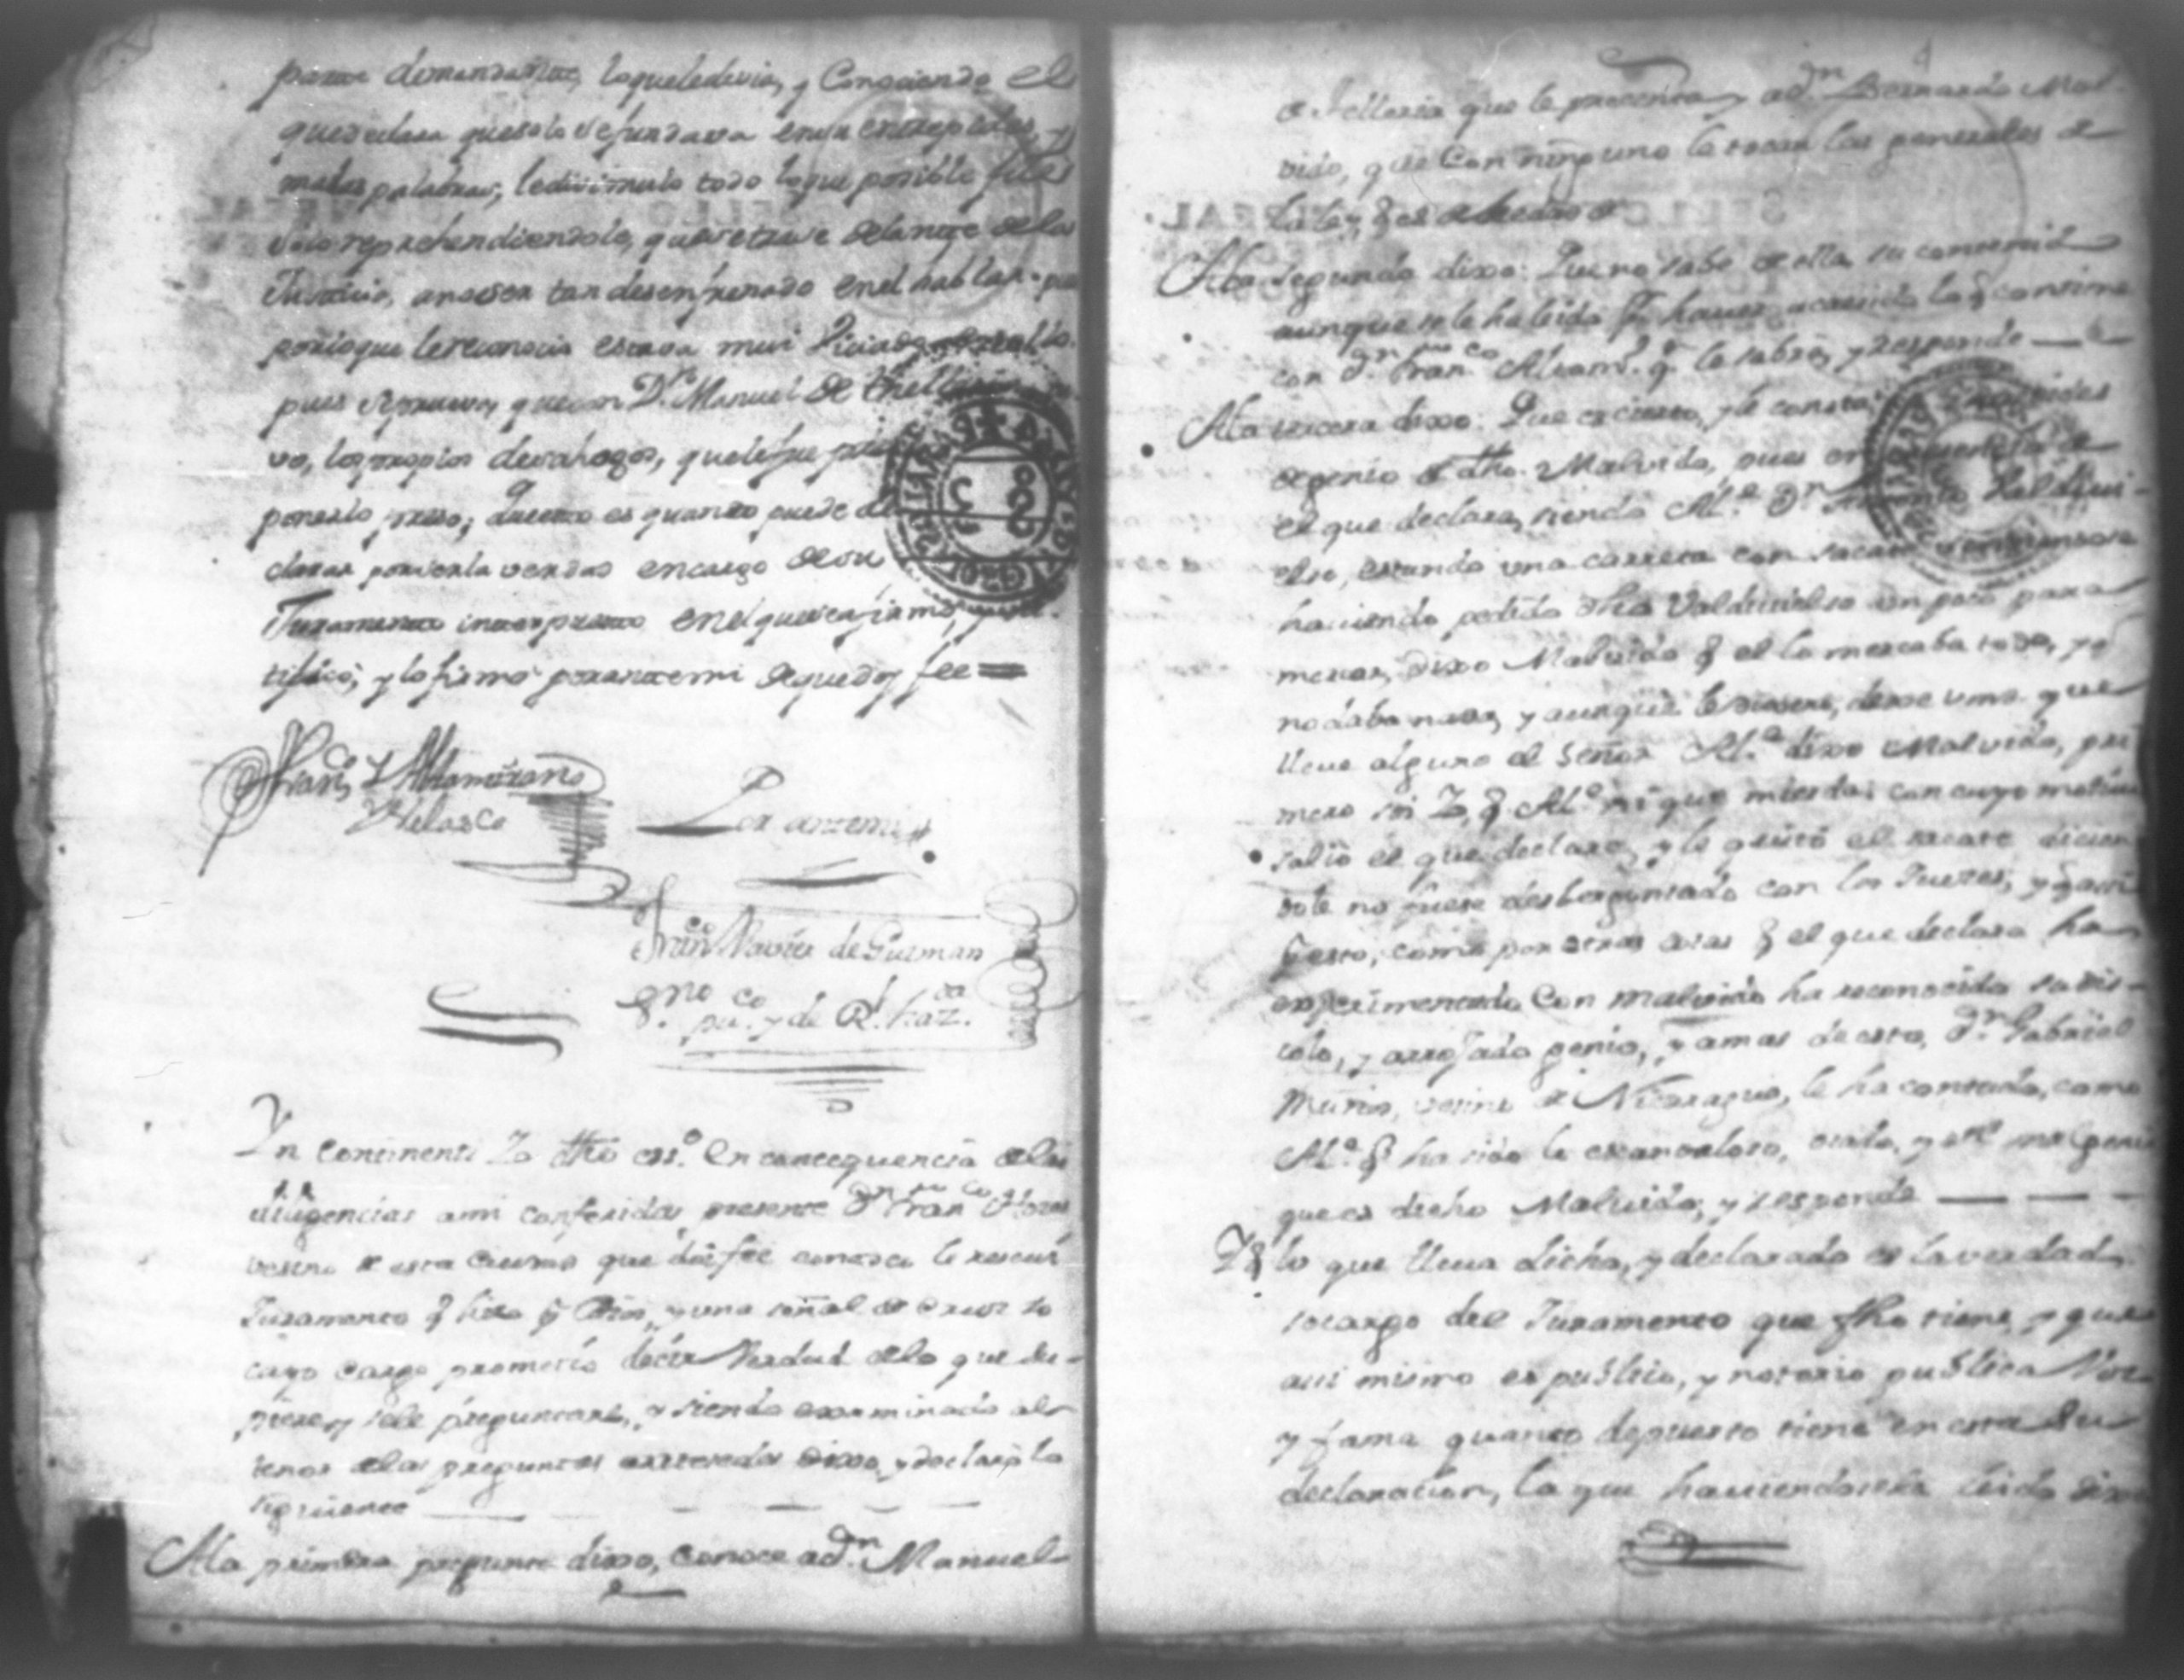 parte demandante, loqueledevia, y Conociendo el
quedeclara quesolo sefundava ensu
malas palabras, ledisimulo todo loque posible
solo reprehendiendole, quesetruxe delante dela
Justicia, anoser tan desenfrenado enel hablar. pues
porloque lereconocia estava mui Viciado
pues que con Dn. Manuel de Thelleria
vo, los propios desahogos, quelefue
ponerlo preso; Queesto es quanto puede de
clarar porserla verdad encargo desu
Juramento interpuesto enelqueseafirmó, y ra
tificó; y lofirmó porantemi dequedoy fee =
Franco. Altamirano
Velasco
Por antemi
Franco. Xavier de Guzman
Sno. puco. y de Rl. haza.
Yn Continenti Yo dho ess.o En concequencia delas
diligencias ami conferidas presente Dn. Franco. Flores
vesino de esta Ciudad que doi fee conosco le receui
Juramento q hizo p Dios, y una señal de Cruz so
cuyo cargo prometió decir Verdad delo que su-
piere y sele preguntare, y siendo examinado al
tenor delas preguntas dixo, y declaró lo
siguiente
Ala primera pregunta dixo, Conoce adn. Manuel
de Telleria que le precenta, y adn. Bernardo Mal
vido, que Con ninguno le tocan las generales de
la ley, q es de
Ala segunda dixo: Que no sabe de ella su contenido
aunque se le ha leido p hauer acaecido lo q contiene
con Dn. Franco. Altamo. q. lo sabrá, y responde
Ala tercera dixo: Que es cierto, y le consta
de genio de dho. Malvido, pues en precencia de
el que declara, siendo Ale. Dn. Valdiui-
elso, estando una carreta con sacate
haviendo pedido dho Valdiuielso un poco para
mercar, dixo Malvido q el lo mercaba todo, y
no daba nada, y aunque le dixeron, dexe vmd. que
lleve alguno el Señor Ale. dixo Malvido, pri
mero soi Yo, q Ale. ni que mierda; con cuyo motivo
salio el que declara, y le quitó el sacate dicien
dole no fuese desbergonsado con los Jueces; y q asi
p esto, como por otras cosas q el que declara ha
experimentado Con Malvido ha reconocido su dis-
colo, y arrojado genio, y amas de esto, Dn. Gabriel
Muños, vesino de Nicaragua, le ha contado, como
Ale. q ha sido lo escandaloso, osado, y de mal genio
que es dicho Malvido; y responde
Y q lo que lleva dicho, y declarado es la verdad
socargo del Juramento que fho tiene, y que
asi mismo es publico, y notorio publica Voz
y fama quanto depuesto tiene en esta su
declaracion, la que haviendosele leido dixo